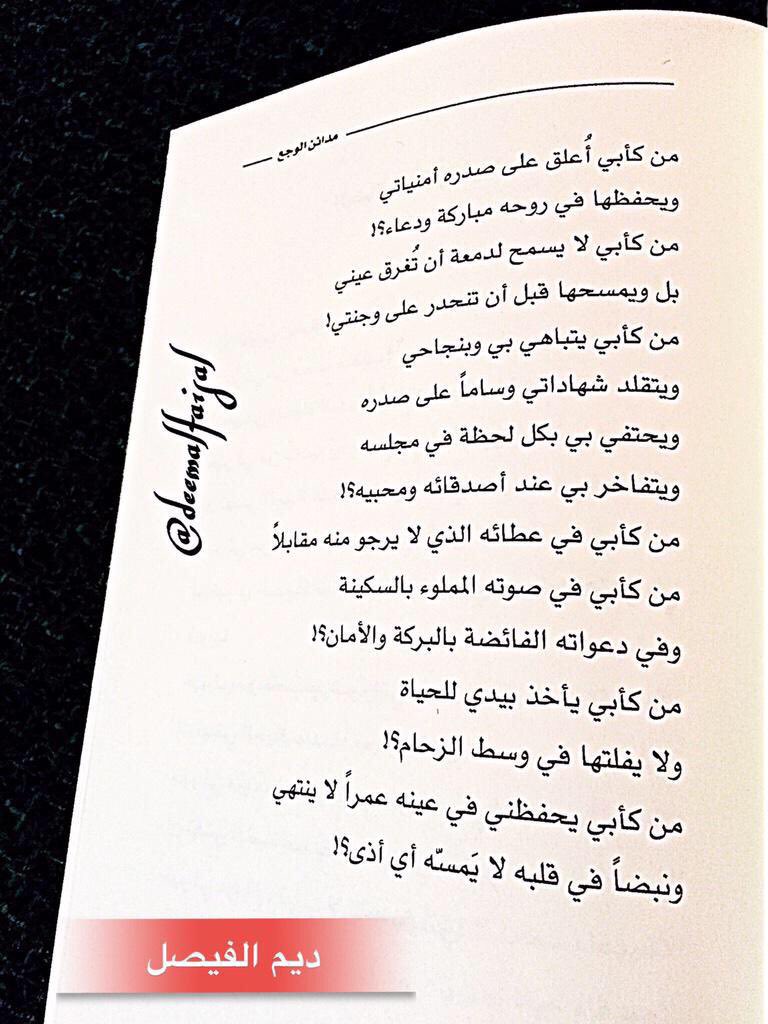 مدائن الوجع
من كأبي أُعلق على صدره أمنياتي
ويحفظها في روحه مباركة ودعاء؟!
من كأبي لا يسمح لدمعة أن تُغرق عيني
بل ويمسحها قبل أن تنحدر على وجنتي!
من كأبي يتباهي بي وبنجاحي
ويتقلد شهاداتي وساماً على صدره
ويحتفي بي بكل لحظة في مجلسه
ويتفاخر بي عند أصدقائه ومحبيه؟!
من كأبي في عطائه الذي لا يرجو منه مقابلاً
من كأبي في صوته المملوء بالسكينة
وفي دعواته الفائضة بالبركة والأمان؟!
من كأبي يأخذ بيدي للحياة
ولا يفلتها في وسط الزحام؟!
من كأبي يحفظني في عينه عمراً لا ينتهي
ونبضاً في قلبه لا يَمسّه أي أذى؟!
@deemalfaisal
ديم الفيصل